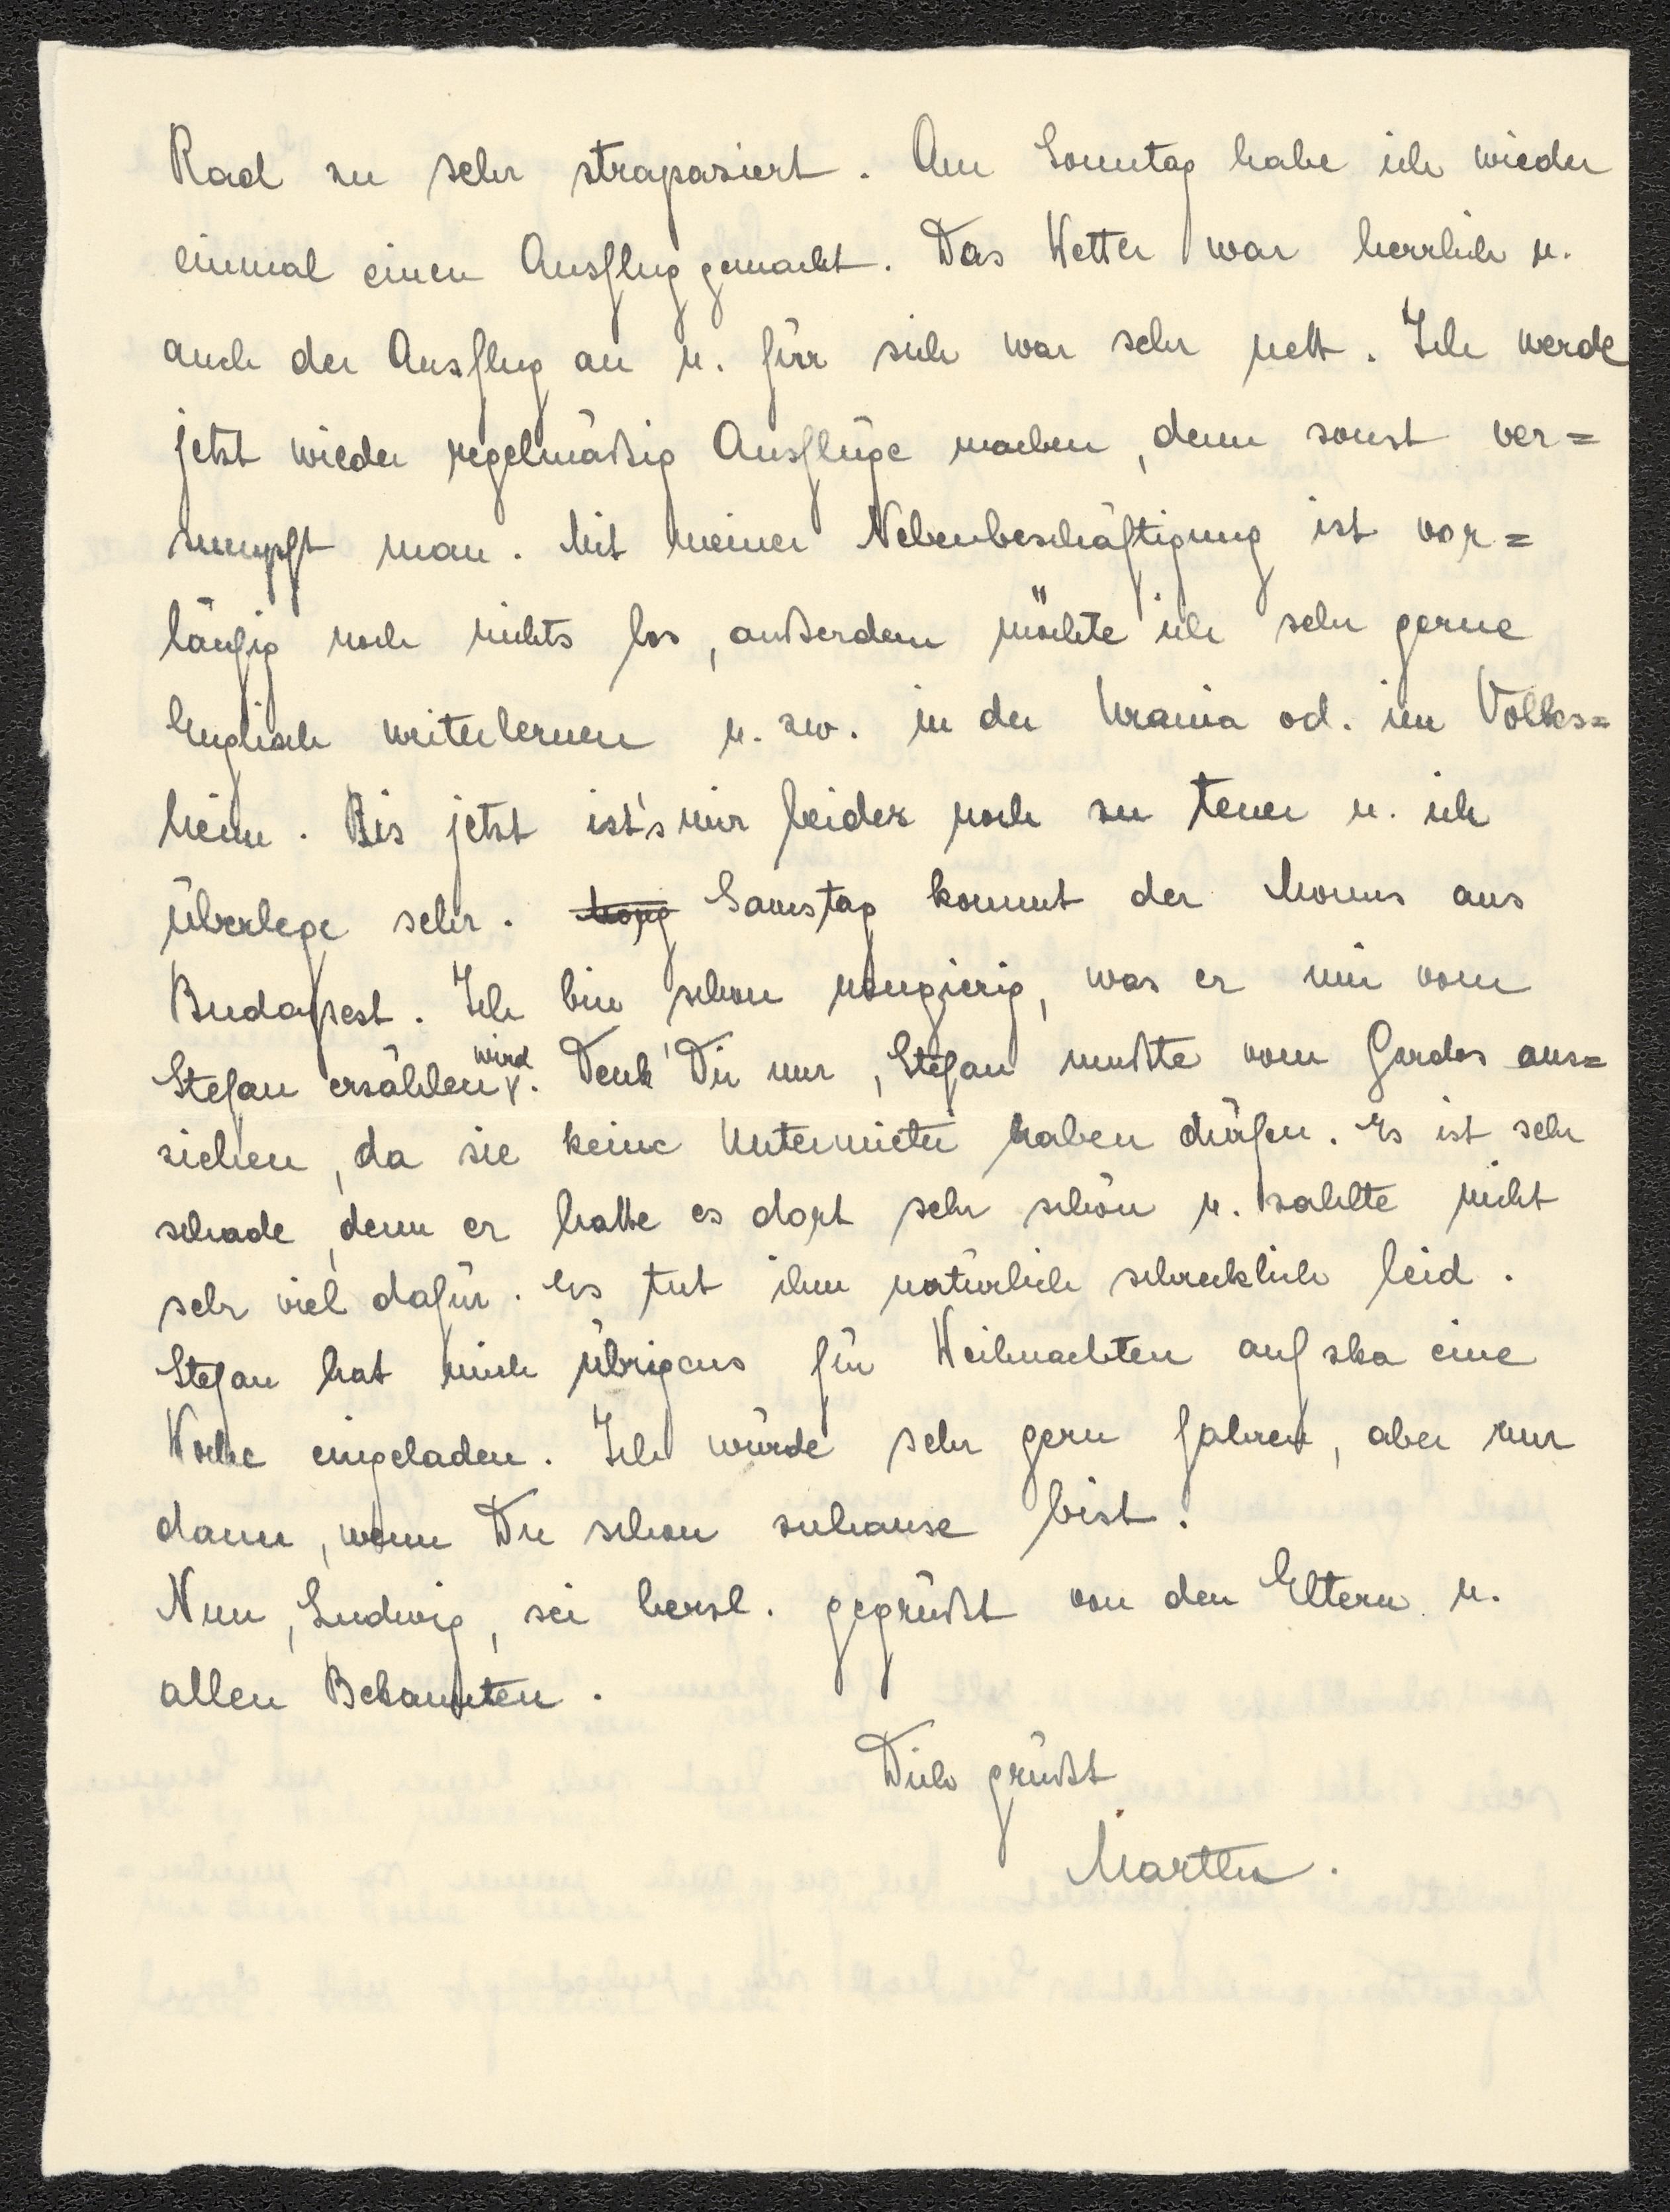 Rad zu sehr strapaziert. Am Sonntag habe ich wieder
einmal einen Ausflug gemacht. Das Wetter war herrlich u.
auch der Ausflug an u. für sich war sehr nett. Ich werde
jetzt wieder regelmäßig Ausflüge machen, denn sonst ver=
sumpft man. Mit meiner Nebenbeschäftigung ist vor=
läufig noch nichts los, außerdem möchte ich sehr gerne
Englisch weiterlernen u. zw. in der Urania od. im Volks=
heim. Bis jetzt ist's mir leider noch zu teuer u. ich
überlege sehr. Samstag kommt der Momus aus
Budapest. Ich bin schon neugierig, was er mir vom
Stefan erzählen wird. Denk' Dir nur, Stefan mußte vom Gardos aus=
ziehen, da sie keine Untermieter haben dürfen. Es ist sehr
schade, denn er hatte es dort sehr schön u. zahlte nicht
sehr viel dafür. Es tut ihm natürlich schrecklich leid.
Stefan hat mich übrigens für Weihnachten auf zka eine
Woche eingeladen. Ich würde sehr gern fahren, aber nur
dann, wenn Du schon zuhause bist.
Nun, Ludwig, sei herzl. gegrüßt von den Eltern u.
allen Bekannten.
Dich grüßt
Marttu.